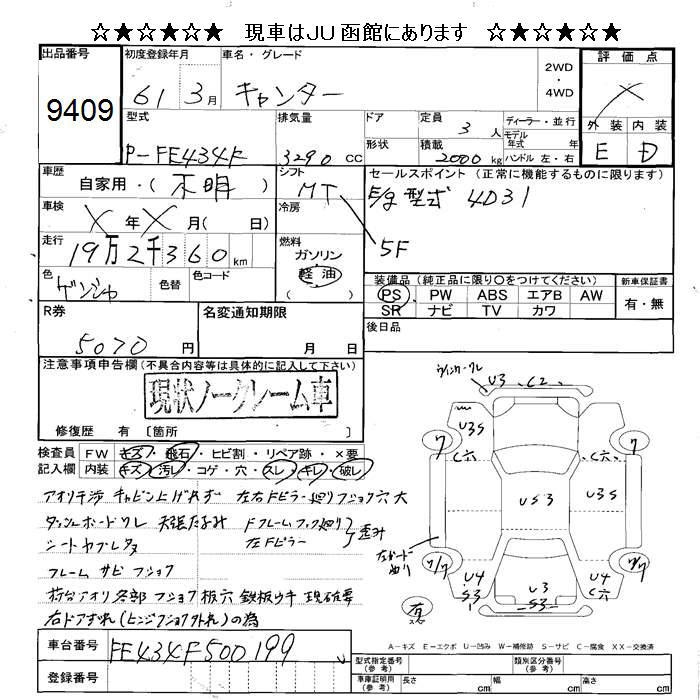 ☆★☆★☆★ 現車はJU函館にあります ☆★☆★☆★
出品番号
9409
初度登録年月
61 3月
車名・グレード
キャンター
2WD
・
4WD
評価点
外装 内装
E D
型式
P-FE434F
排気量
3290 CC
ドア
定員
3 人
形状
積載
2000 kg
ディーラー・並行
モデル
年式 年
ハンドル 左・右
車歴
自家用・(不明)
シフト
MT
5F
冷房
セールスポイント(正常に機能するものに限ります)
E/g型式 4D31
車検
X 年 X 月( 日)
走行
19万2千360 km
燃料
ガソリン
軽油
( )
色
ゲンジャ
色替
色コード
装備品(純正品に限り○をつけてください)
PS PW ABS エアB AW
SR ナビ TV カワ
新車保証書
有・無
R券
5070 円
名変通知期限
月 日
後日品
注意事項申告欄(不具合内容等は具体的に記入して下さい)
現状ノークレーム車
修復歴 有 〔箇所
検査員
記入欄
FW キズ・飛石・ヒビ割・リペア跡・×要
内装 キズ・汚レ・コゲ・穴・スレ・キレ・破レ
アオリ干渉 キャビン上げれず 左右Fピラー廻りフショク穴大
ダッシュボードワレ 天張たるみ Fフレームフック廻り
左Fピラー 歪み
シートヤブレタメ
フレーム サビ フショク
荷台アオリ各部フショク 板穴 鉄板ウキ 現確要
右ドアずれ(ヒンジフショク外れ)の為
車台番号
FE434F500199
登録番号
ウィンカーワレ
U3 C2
U3S
ワ
ワ
C穴
C穴
US3
U3S
左ガード
廻り
ワ/ワ
ワ/ワ
U4
S3
U3
S3
U4
C穴
有
A-キズ E-エクボ U-凹み W-補修跡 S-サビ C-腐食 XX-交換済
型式指定番号
(参考)
類別区分番号
(参考)
車庫証明用
(参考)
長さ cm
幅 cm
高さ cm